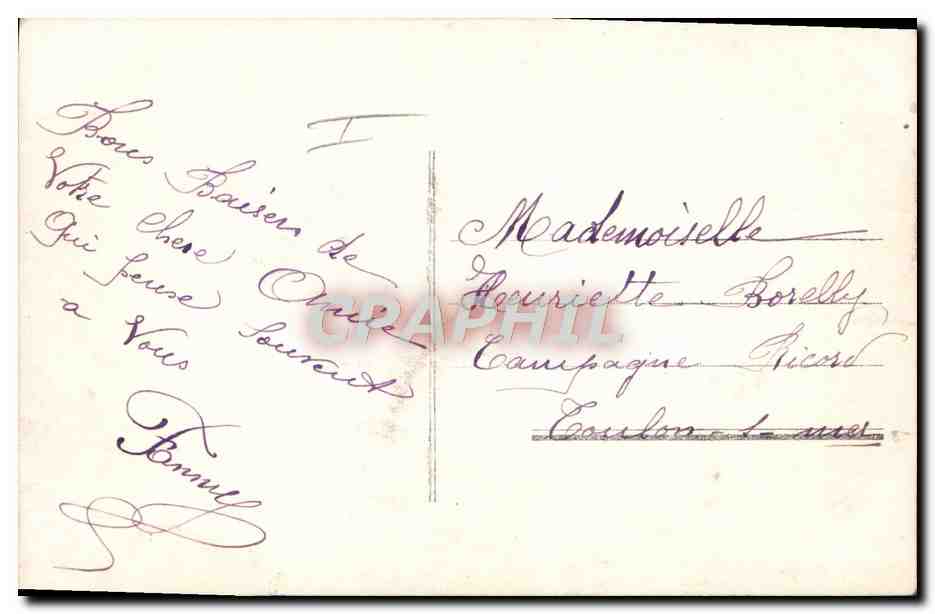 I
Bons Baisers de
Votre Chere Amie
Qui pense Souvent
a Vous
Fanny
Mademoiselle
Henriette Borelly
Campagne Ricord
Toulon s mer
CRAPHIL